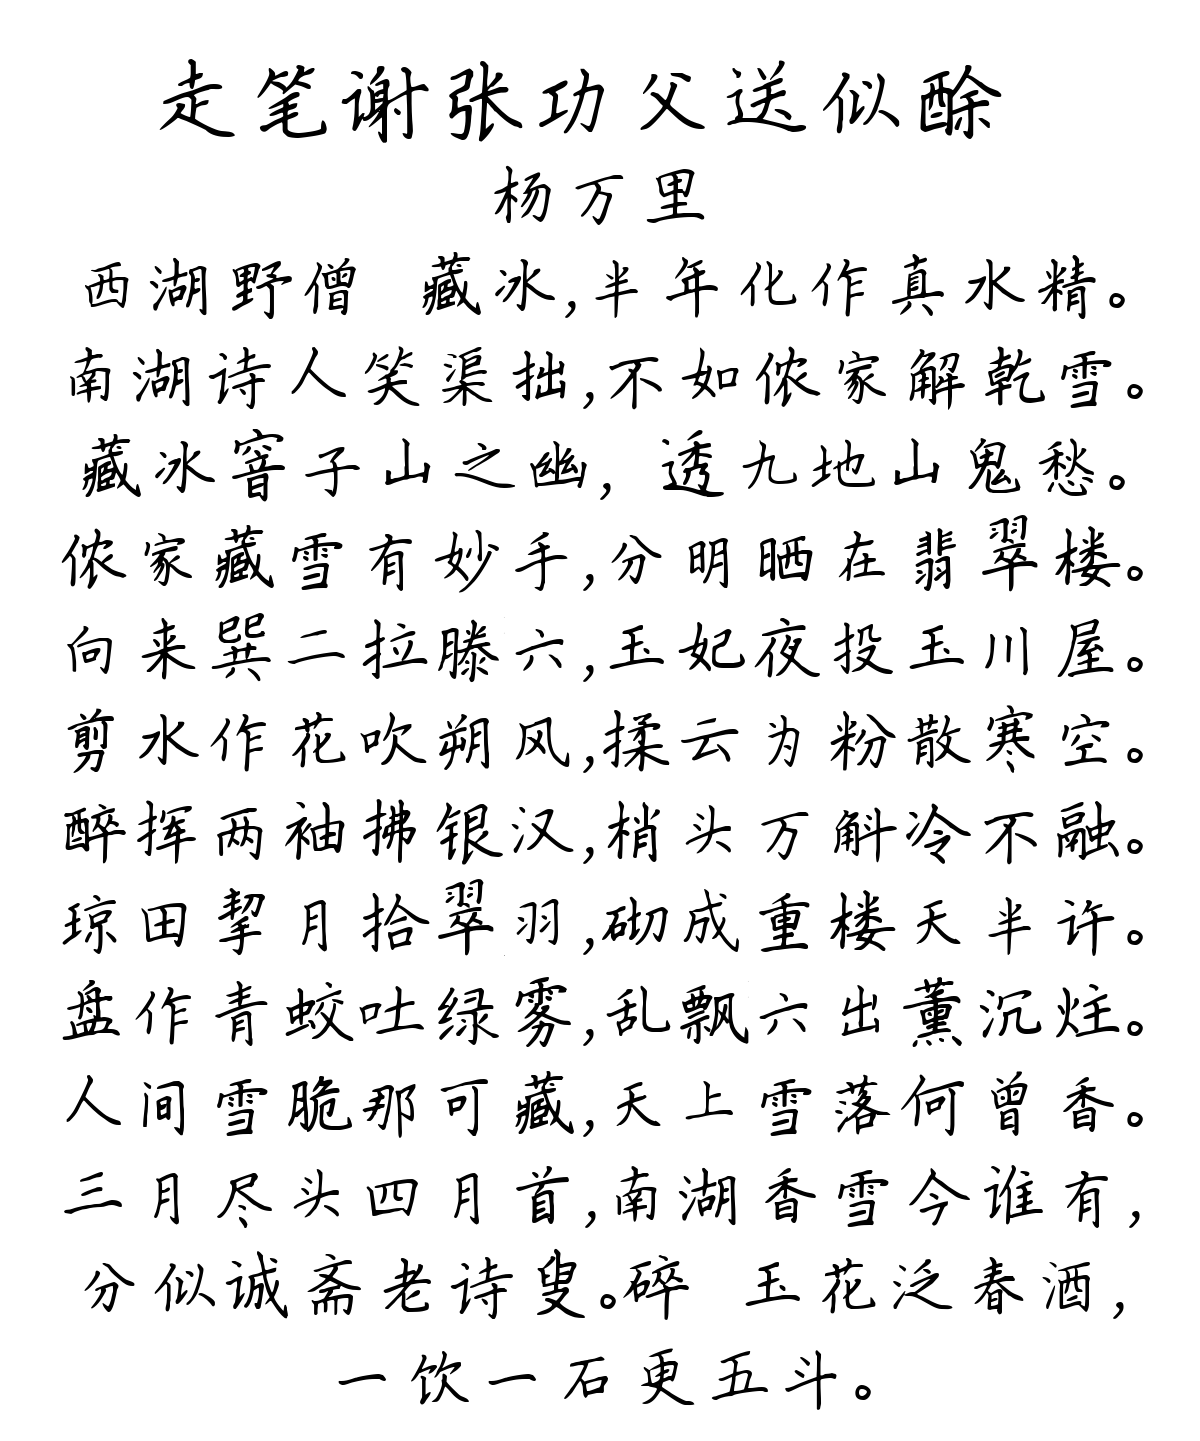 走笔谢张功父送似酴
杨万里
西湖野僧 藏冰,半年化作真水精。
南湖诗人笑渠拙,不如侬家解乾雪。
藏冰窨子山之幽, 透九地山鬼愁。
侬家藏雪有妙手,分明晒在翡翠楼。
向来巽二拉滕六,玉妃夜投玉川屋。
剪水作花吹朔风,揉云为粉散寒空。
醉挥两袖拂银汉,梢头万斛冷不融。
琼田挈月拾翠羽,砌成重楼天半许。
盘作青蛟吐绿雾,乱飘六出薰沉炷。
人间雪脆那可藏,天上雪落何曾香。
三月尽头四月首,南湖香雪今谁有,
分似诚斋老诗叟。碎 玉花泛春酒,
一饮一石更五斗。